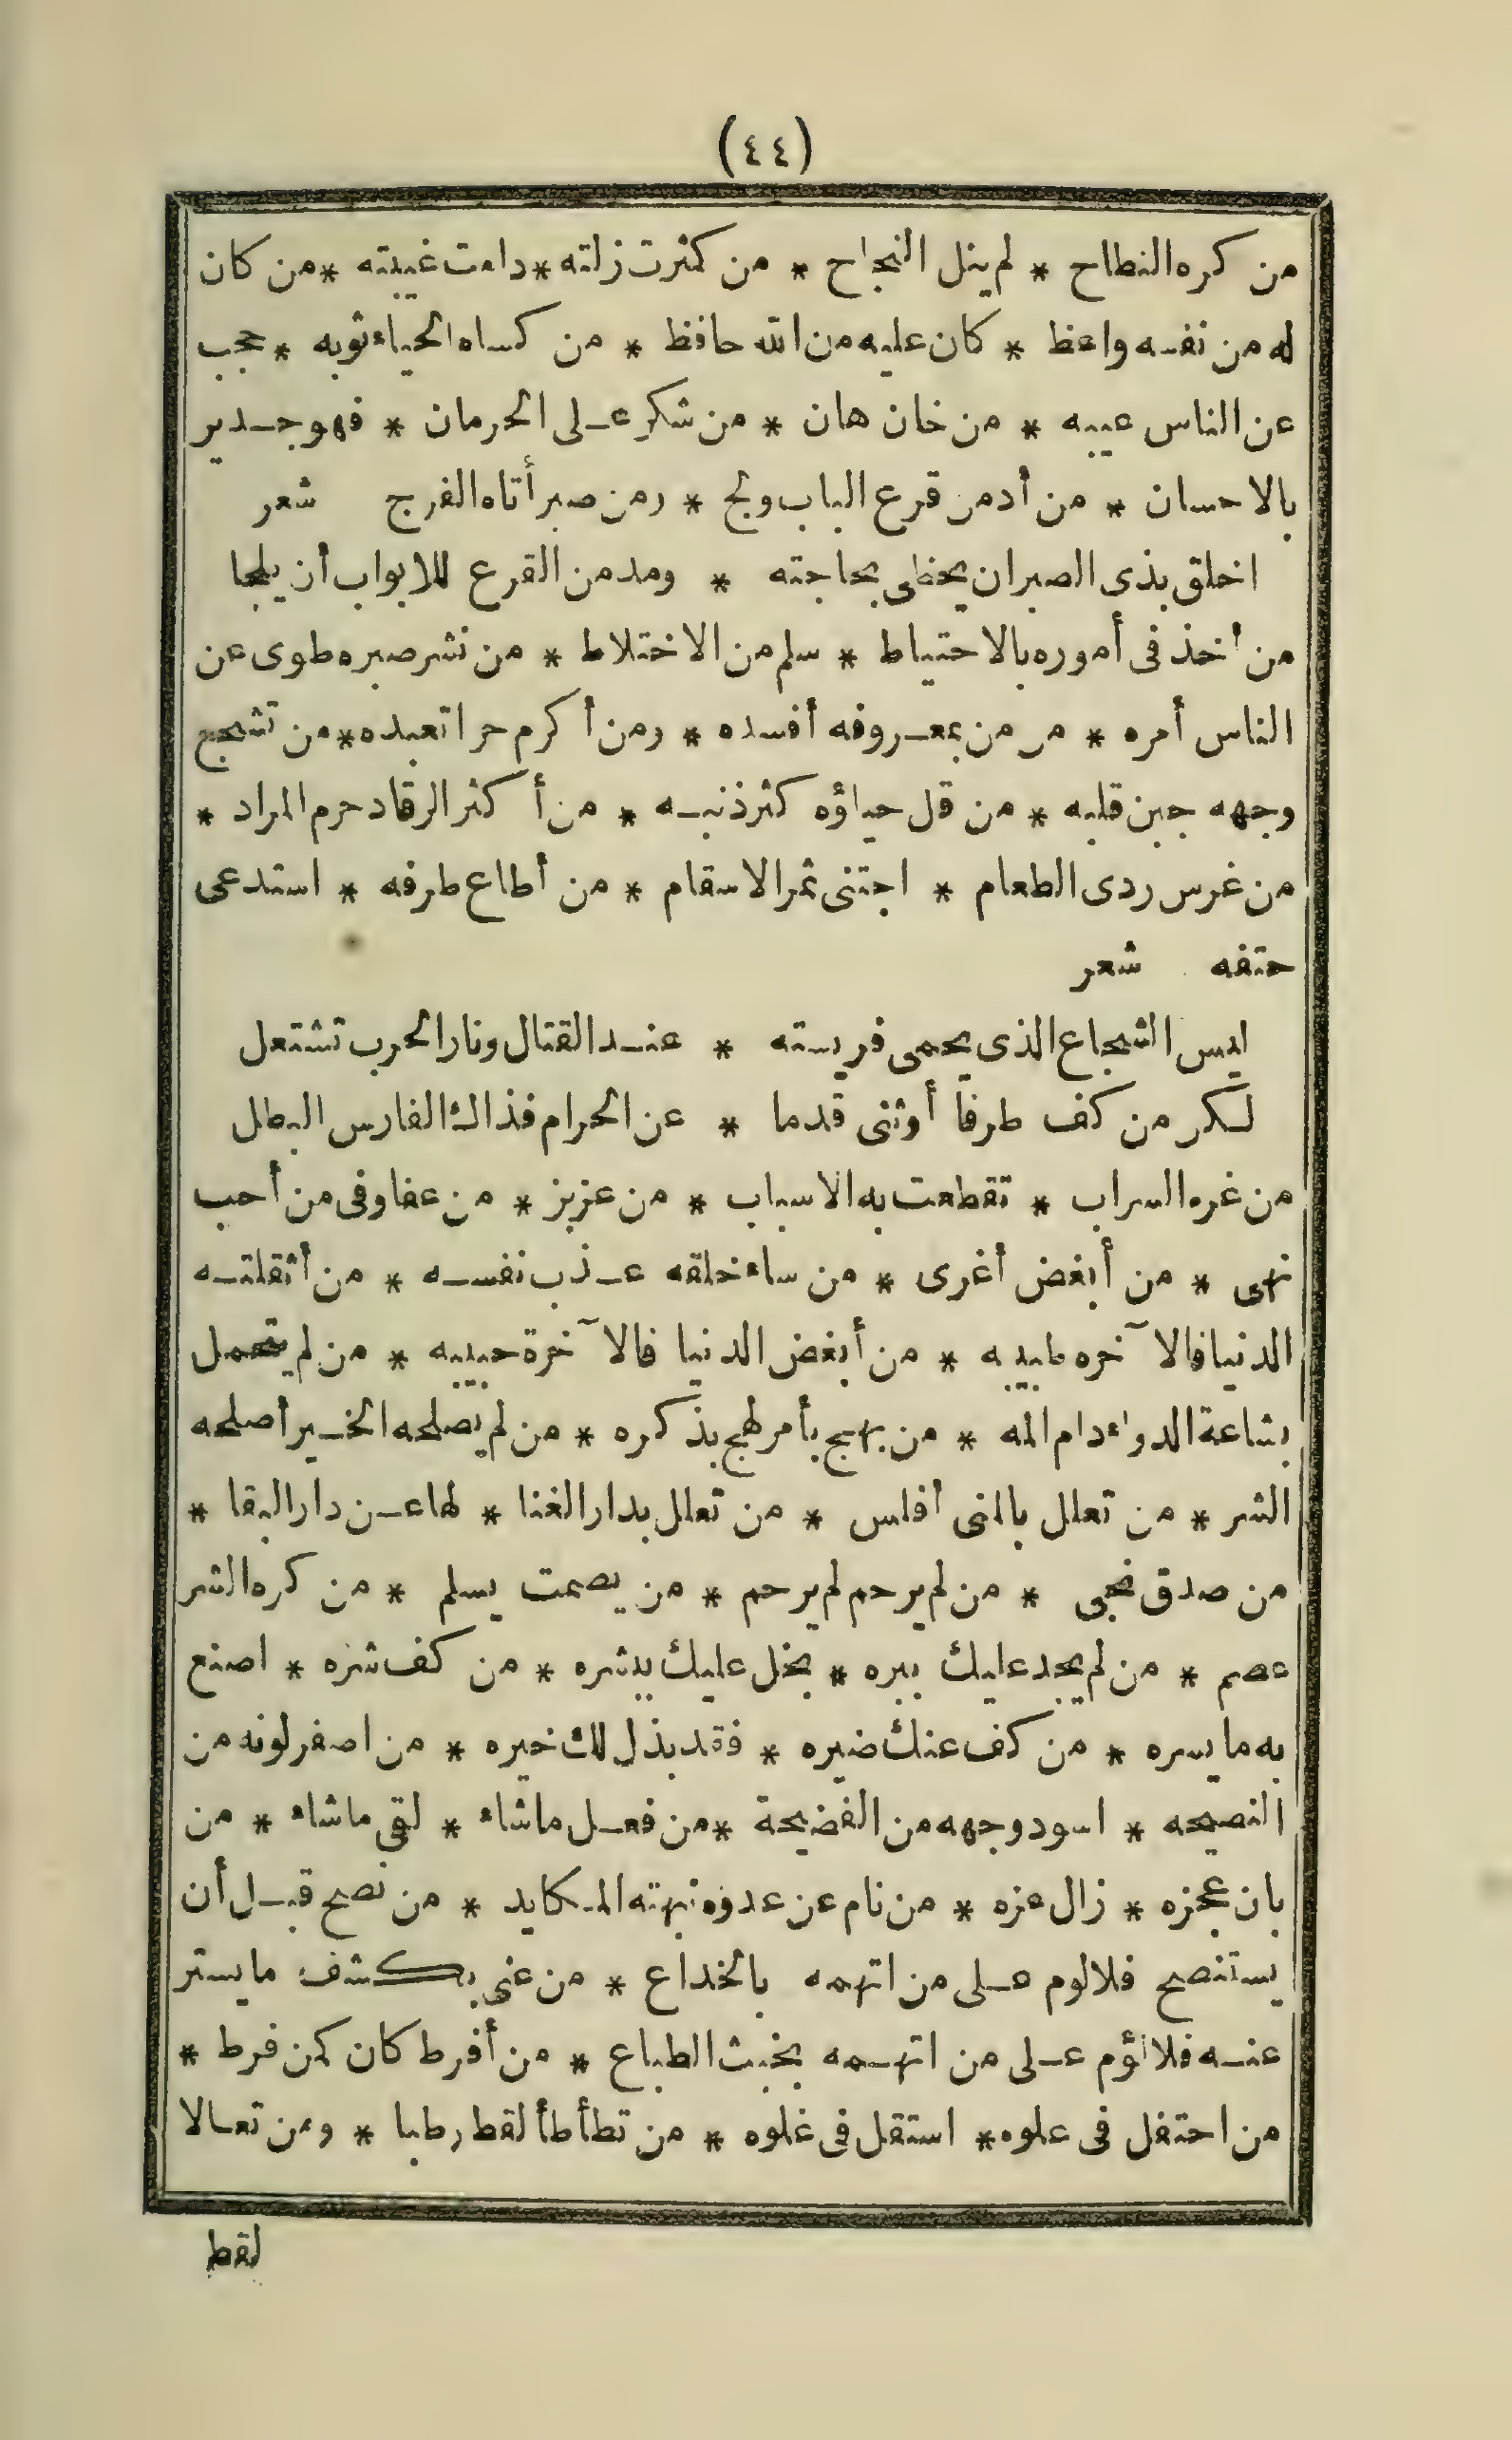 (٤٤)
من كره النطاح * لم ينل النجاح * من كثرت زلته * دامت غيبته * من كان
له من نفسه واعظ * كان عليه من الله حافظ * من كساه الحياء ثوبه * حجب
عن الناس عيبه * من خان هان * من شكر على الحرمان * فهو جدير
بالاحسان * من أدمن قرع الباب ولج * ومن صبر أتاه الفرج شعر
اخلق بذى الصبر ان يحظى بحاجته * ومدمن القرع للابواب أن يلجا
من أخذ فى أموره بالاحتياط * سلم من الاختلاط * من نشر صبره طوى عن
الناس أمره * من من بمعروفه أفسده * ومن أكرم حرا تعبده * من تشجع
وجهه جبن قلبه * من قل حياؤه كثر ذنبه * من أكثر الرقاد حرم المراد *
من غرس ردى الطعام * اجتنى ثمر الاسقام * من أطاع طرفه * استدعى
حتفه شعر
ليس الشجاع الذى يحمى فريسته * عند القتال ونار الحرب تشتعل
لكن من كف طرفا أو ثنى قدما * عن الحرام فذاك الفارس البطل
من غره السراب * تقطعت به الاسباب * من عز بز * من عفا وفى من أحب
نهى * من أبغض أغرى * من ساء خلقه عذب نفسه * من أثقلته
الدنيا فالآخره طبيبه * من أبغض الدنيا فالآخرة حبيبه * من لم يتحمل
بشاعة الدواء دام المه * من بهج بأمر لهج بذكره * من لم يصلحه الخير أصلحه
الشر * من تعلل بالمنى أفلس * من تعلل بدار الغنا * لها عن دار البقا *
من صدق نجى * من لم يرحم لم يرحم * من يصمت يسلم * من كره الشر
عصم * من لم يجد عليك ببره * بخل عليك ببشره * من كف شره * اصنع
به ما يسره * من كف عنك ضيره * فقد بذل لك خيره * من اصفر لونه من
النصيحه * اسود وجهه من الفضيحة * من فعل ماشاء * لقى ماشاء * من
بان عجزه * زال عزه * من نام عن عدوه نبهته المكايد * من نصح قبل أن
يستنصح فلا لوم على من اتهمه بالخداع * من عنى بكشف ما يستر
عنه فلا لؤم على من اتهمه بخبث الطباع * من أفرط كان كمن فرط *
من احتفل فى علوه * استقل فى غلوه * من تطأطأ لقط رطبا * ومن تعالا
لقط